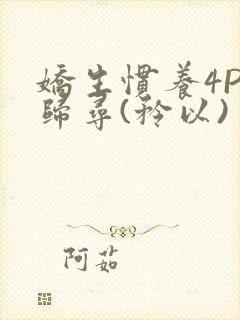 嬌生慣養4P
歸尋(矜以)
阿茹